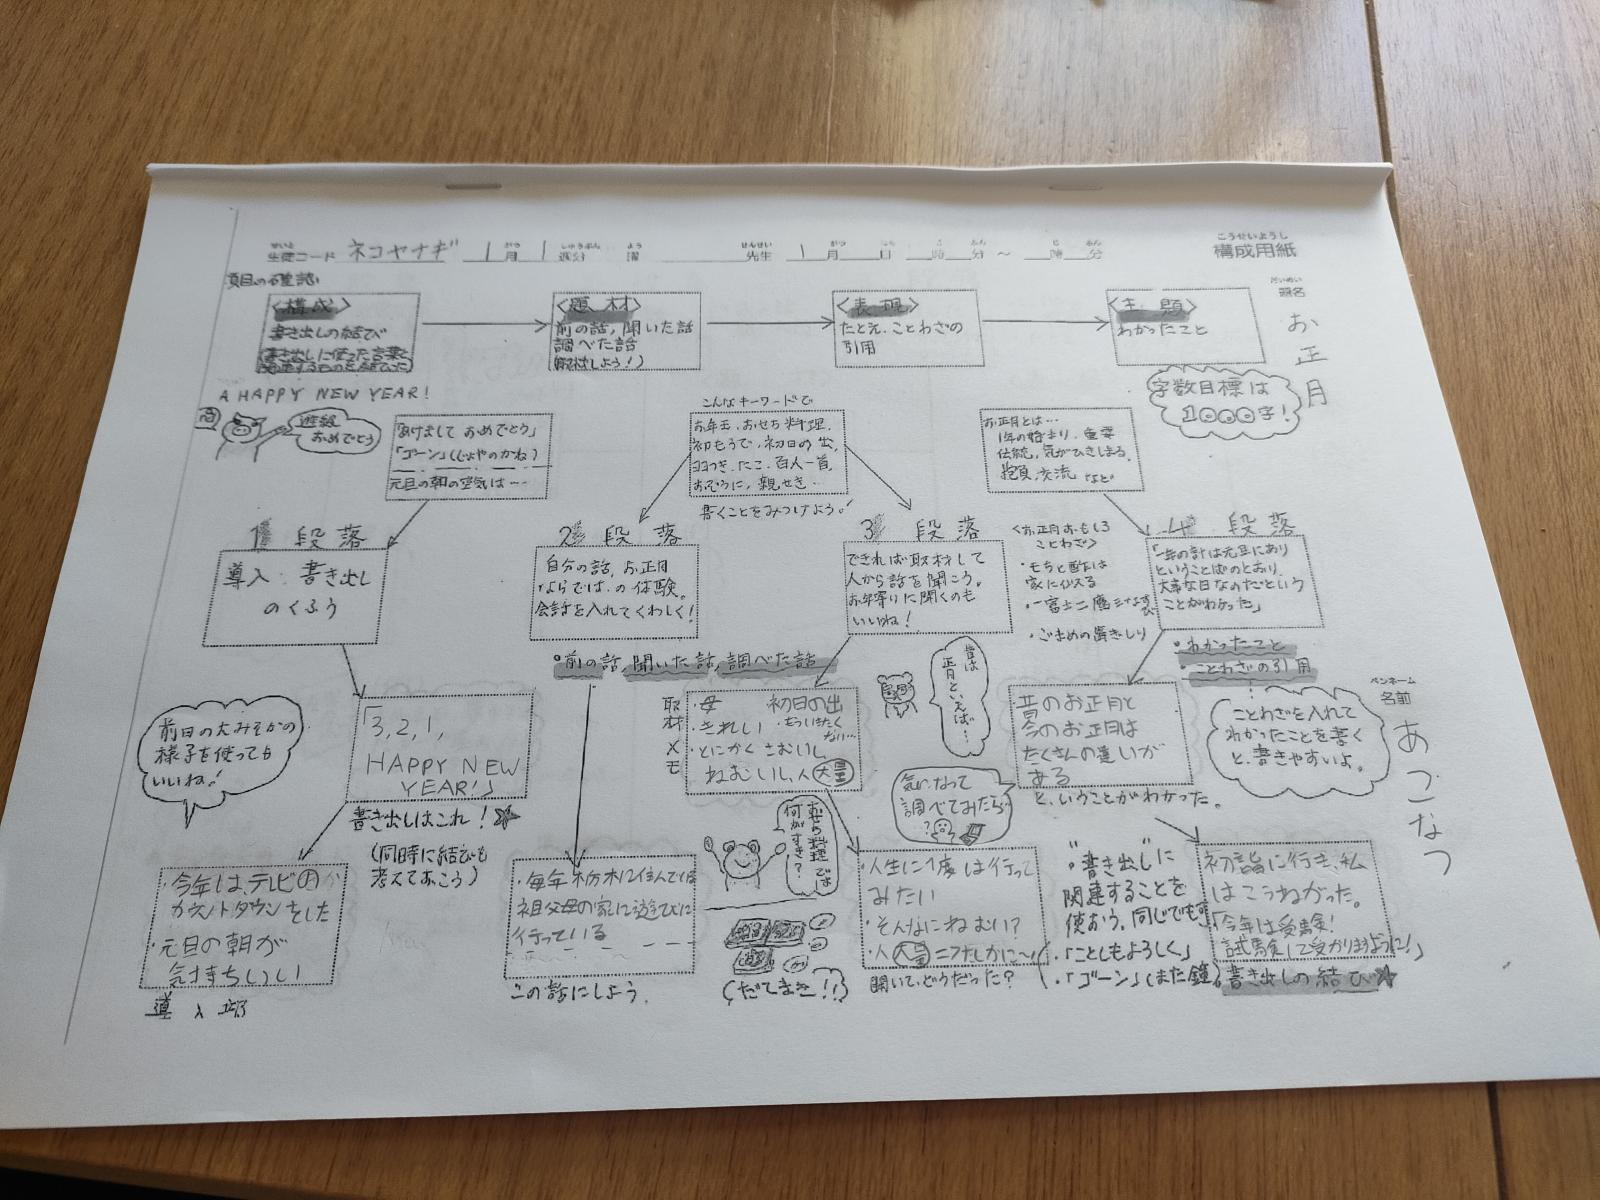 生徒コード ネコヤナギ 1月1週分 曜 先生 1月 日 時 分 ～ 時 分
構成用紙
題名
お正月
項目の確認
<構成>
書き出しの結び
書き出しに使った言葉と
関連するものを結びに
<題材>
前の話, 聞いた話
調べた話
取材しよう!)
<表現>
たとえ、ことわざの
引用
<主題>
わかったこと
字数目標は
1000字!
A HAPPY NEW YEAR!
進級
おめでとう
「あけましておめでとう」
「ゴーン」(じょやのかね)
元旦の朝の空気は…
こんなキーワードで
お年玉、おせち料理、
初もうで、初日の出、
たこ、百人一首、
おぞうに、親せき…
書くことをみつけよう!
お正月とは…
1年の始まり、重要
伝統、気がひきしまる、
抱負、交流 など
1 段落
導入 書き出し
のくふう
2 段落
自分の話、お正月
ならでは、の体験。
会話を入れてくわしく!
3 段落
できれば取材して
人から話を聞こう。
お年寄りに聞くのも
いいね!
<お正月おもしろ
ことわざ>
・もちと酢は
家に似る
・一富士二鷹三なすび
・ごまめの歯ぎしり
4 段落
「一年の計は元旦にあり
ということばのとおり、
大事な日なのだという
ことがわかった」
・わかったこと
・ことわざの引用
・前の話, 聞いた話, 調べた話
前日の大みそかの
様子を使っても
いいね!
「3, 2, 1,
HAPPY NEW
YEAR!」
書き出しはこれ!
(同時に結びも
考えておこう)
取材メモ
・母 初日の出
・きれい ・もういきたく
ない…
・とにかくさむいし
ねむいし、人大量
昔は
正月といえば…
昔のお正月と
今のお正月は
たくさんの違いが
ある
と、いうことがわかった。
ことわざを入れて
わかったことを書く
と、書きやすいよ。
ペンネーム
名前
あこなつ
・今年は、テレビの
カウントダウンをした
・元旦の朝が
気持ちいい
導入部
・毎年栃木に住んでいる
祖父母の家に遊びに
行っている
この話にしよう。
おせち料理では
何がすき?
(だてまき!!)
気になって
調べてみたら…
?
・人生に1度は行って
みたい
・そんなにねむい?
・人大量=たしかに～
聞いて、どうだった?
"書き出し"に
関連することを
使おう。同じでも可
・「ことしもよろしく」
・「ゴーン」(また鐘)
初詣に行き、私
はこうねがった。
「今年は受験!
試験して受かりますように!」
書き出しの結び